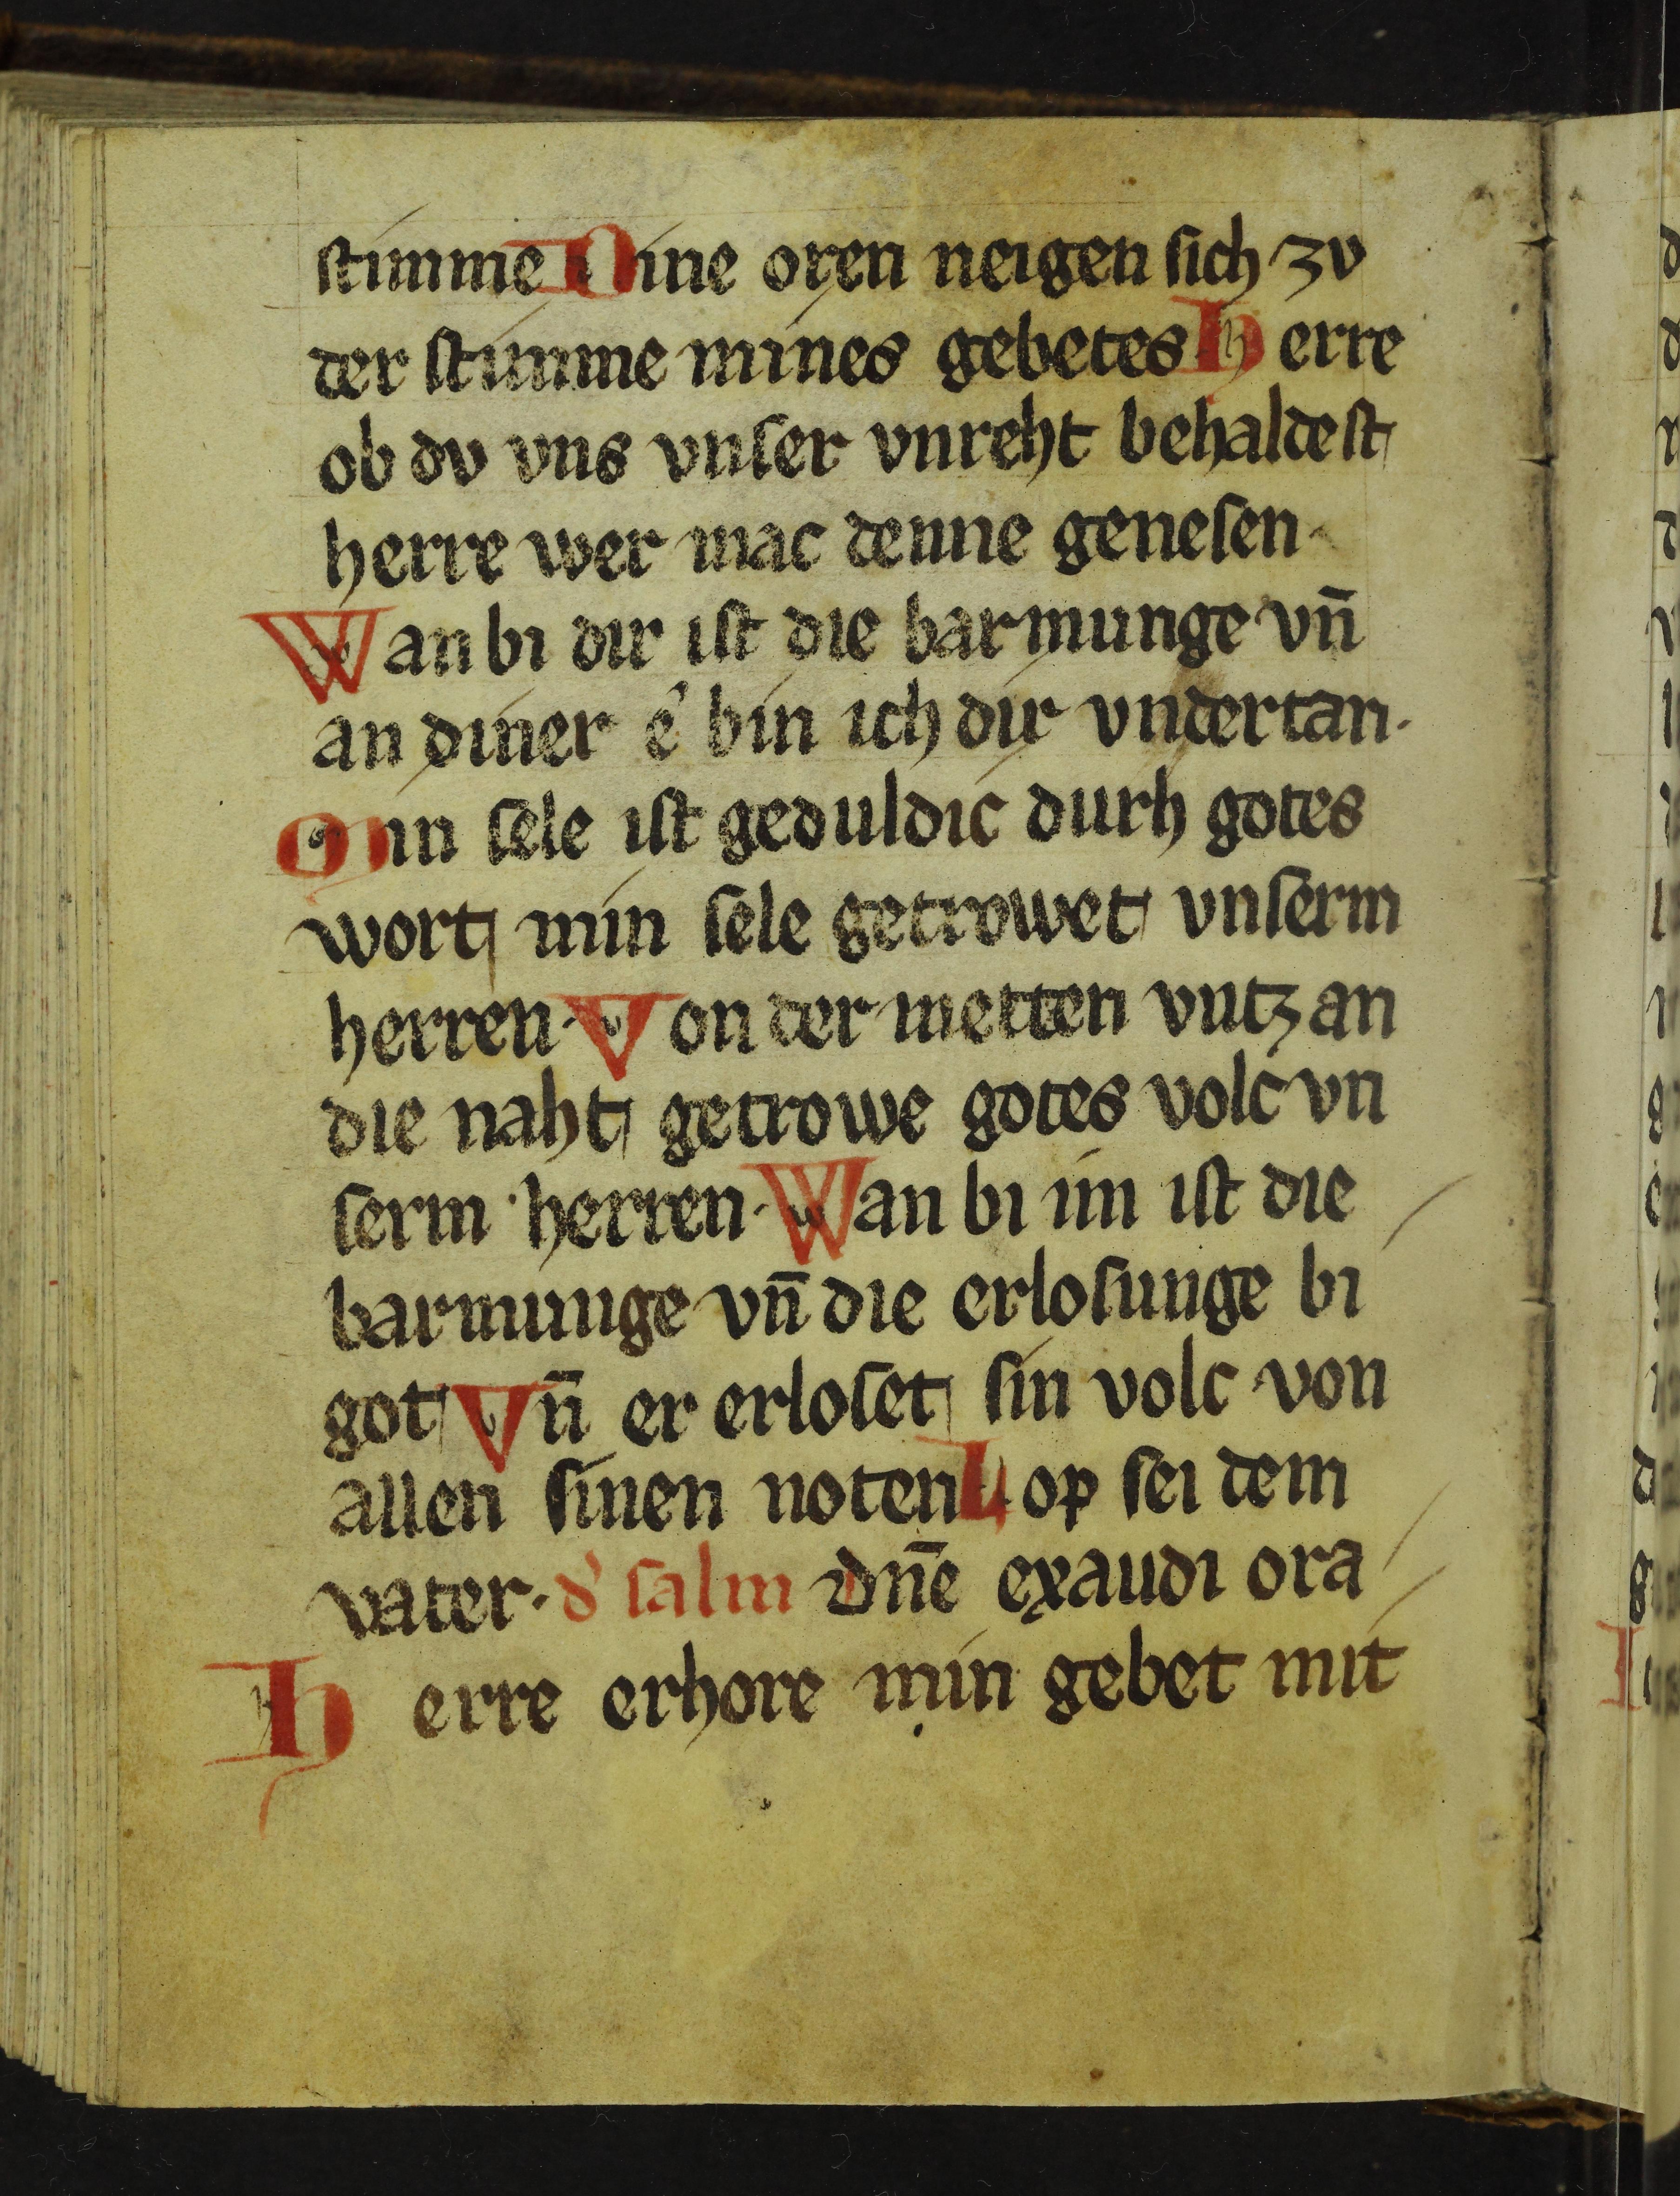 stimme Dine oren neigen sich zv
der stimme mines gebetes Herre
ob dv vns vnser vnreht behaldest
herre wer mac denne genesen·
Wan bi dir ist die barmunge vn̄
an diner e bin ich dir vndertan·
Min sele ist geduldic durh gotes
wort min sele getrowet vnserm
herren· Von der metten vntz an
die naht getrowe gotes volc vn
serm herren· Wan bi im ist die
barmunge vn̄ die erlosunge bi
got Vn̄ er erloset sin volc von
allen sinen noten Lop sei dem
vater· d' salm Dn̄e exaudi ora
Herre erhore min gebet mit